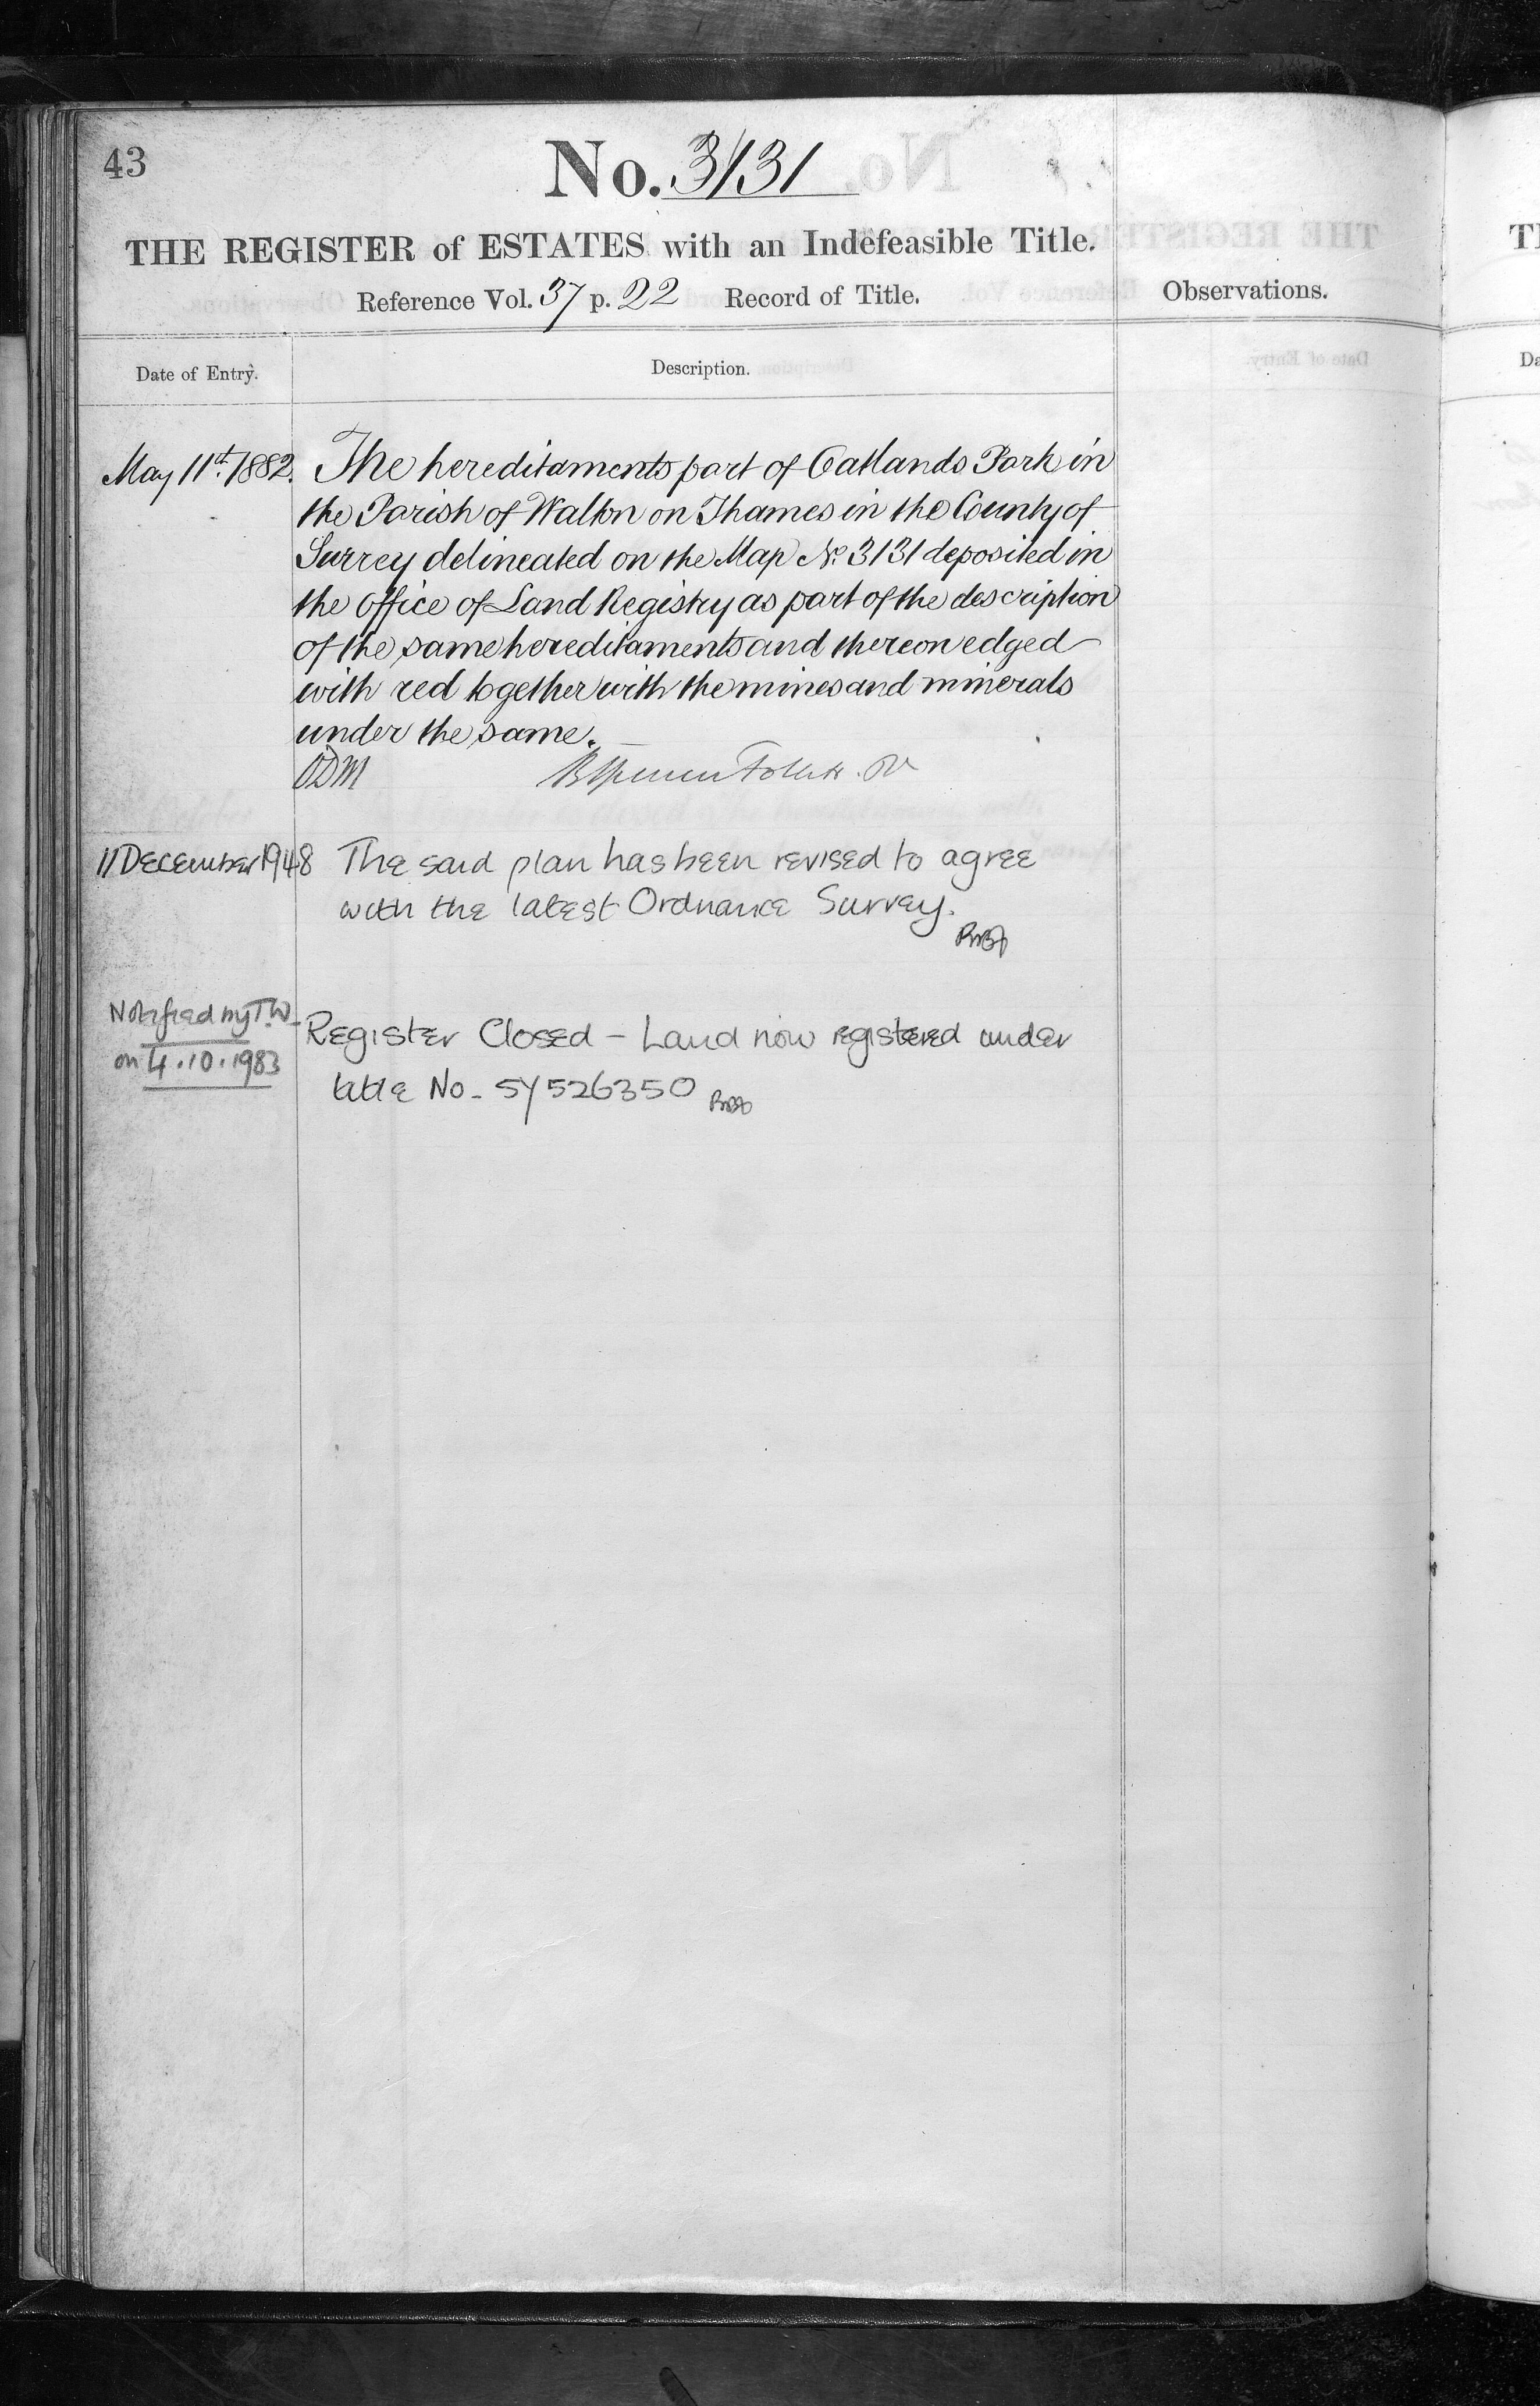 43
No. 3131
THE REGISTER of ESTATES with an Indefeasible Title.
Reference Vol. 37 p. 22 Record of Title.
Observations.
Date of Entry.
Description.
May 11th 1882. The hereditaments part of Oatlands Park in
the Parish of Walton on Thames in the County of
Surrey delineated on the Map No. 3131 deposited in
the office of Land Registry as part of the description
of the same hereditaments and thereon edged
with red together with the mines and minerals
under the same.
ODM
11 December 1948 The said plan has been revised to agree
with the latest Ordnance Survey.
Notified by T.W.
on 4.10.1983
Register Closed - Land now registered under
title No. SY526350